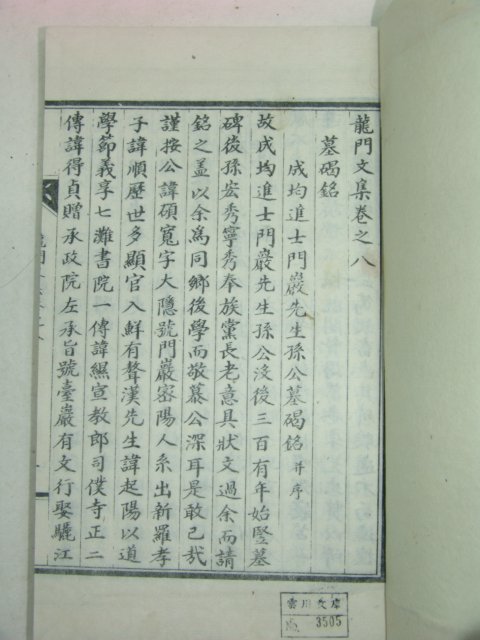 龍門文集卷之八
墓碣銘
成均進士門巖先生孫公墓碣銘并序
故成均進士門巖先生孫公沒後三百有年始竪墓
碑後孫宏秀寧秀奉族黨長老意具狀文過余而請
銘之盖以余爲同鄉後學而敬慕公深耳是敢已哉
謹按公諱碩寬字大隱號門巖密陽人系出新羅孝
子諱順歷世多顯官入鮮有聲漢先生諱起陽以道
學節義享七灘書院一傳諱縜宣教郎司僕寺正二
傳諱得貞贈承政院左承旨號臺巖有文行娶驪江
雲川文庫
3505